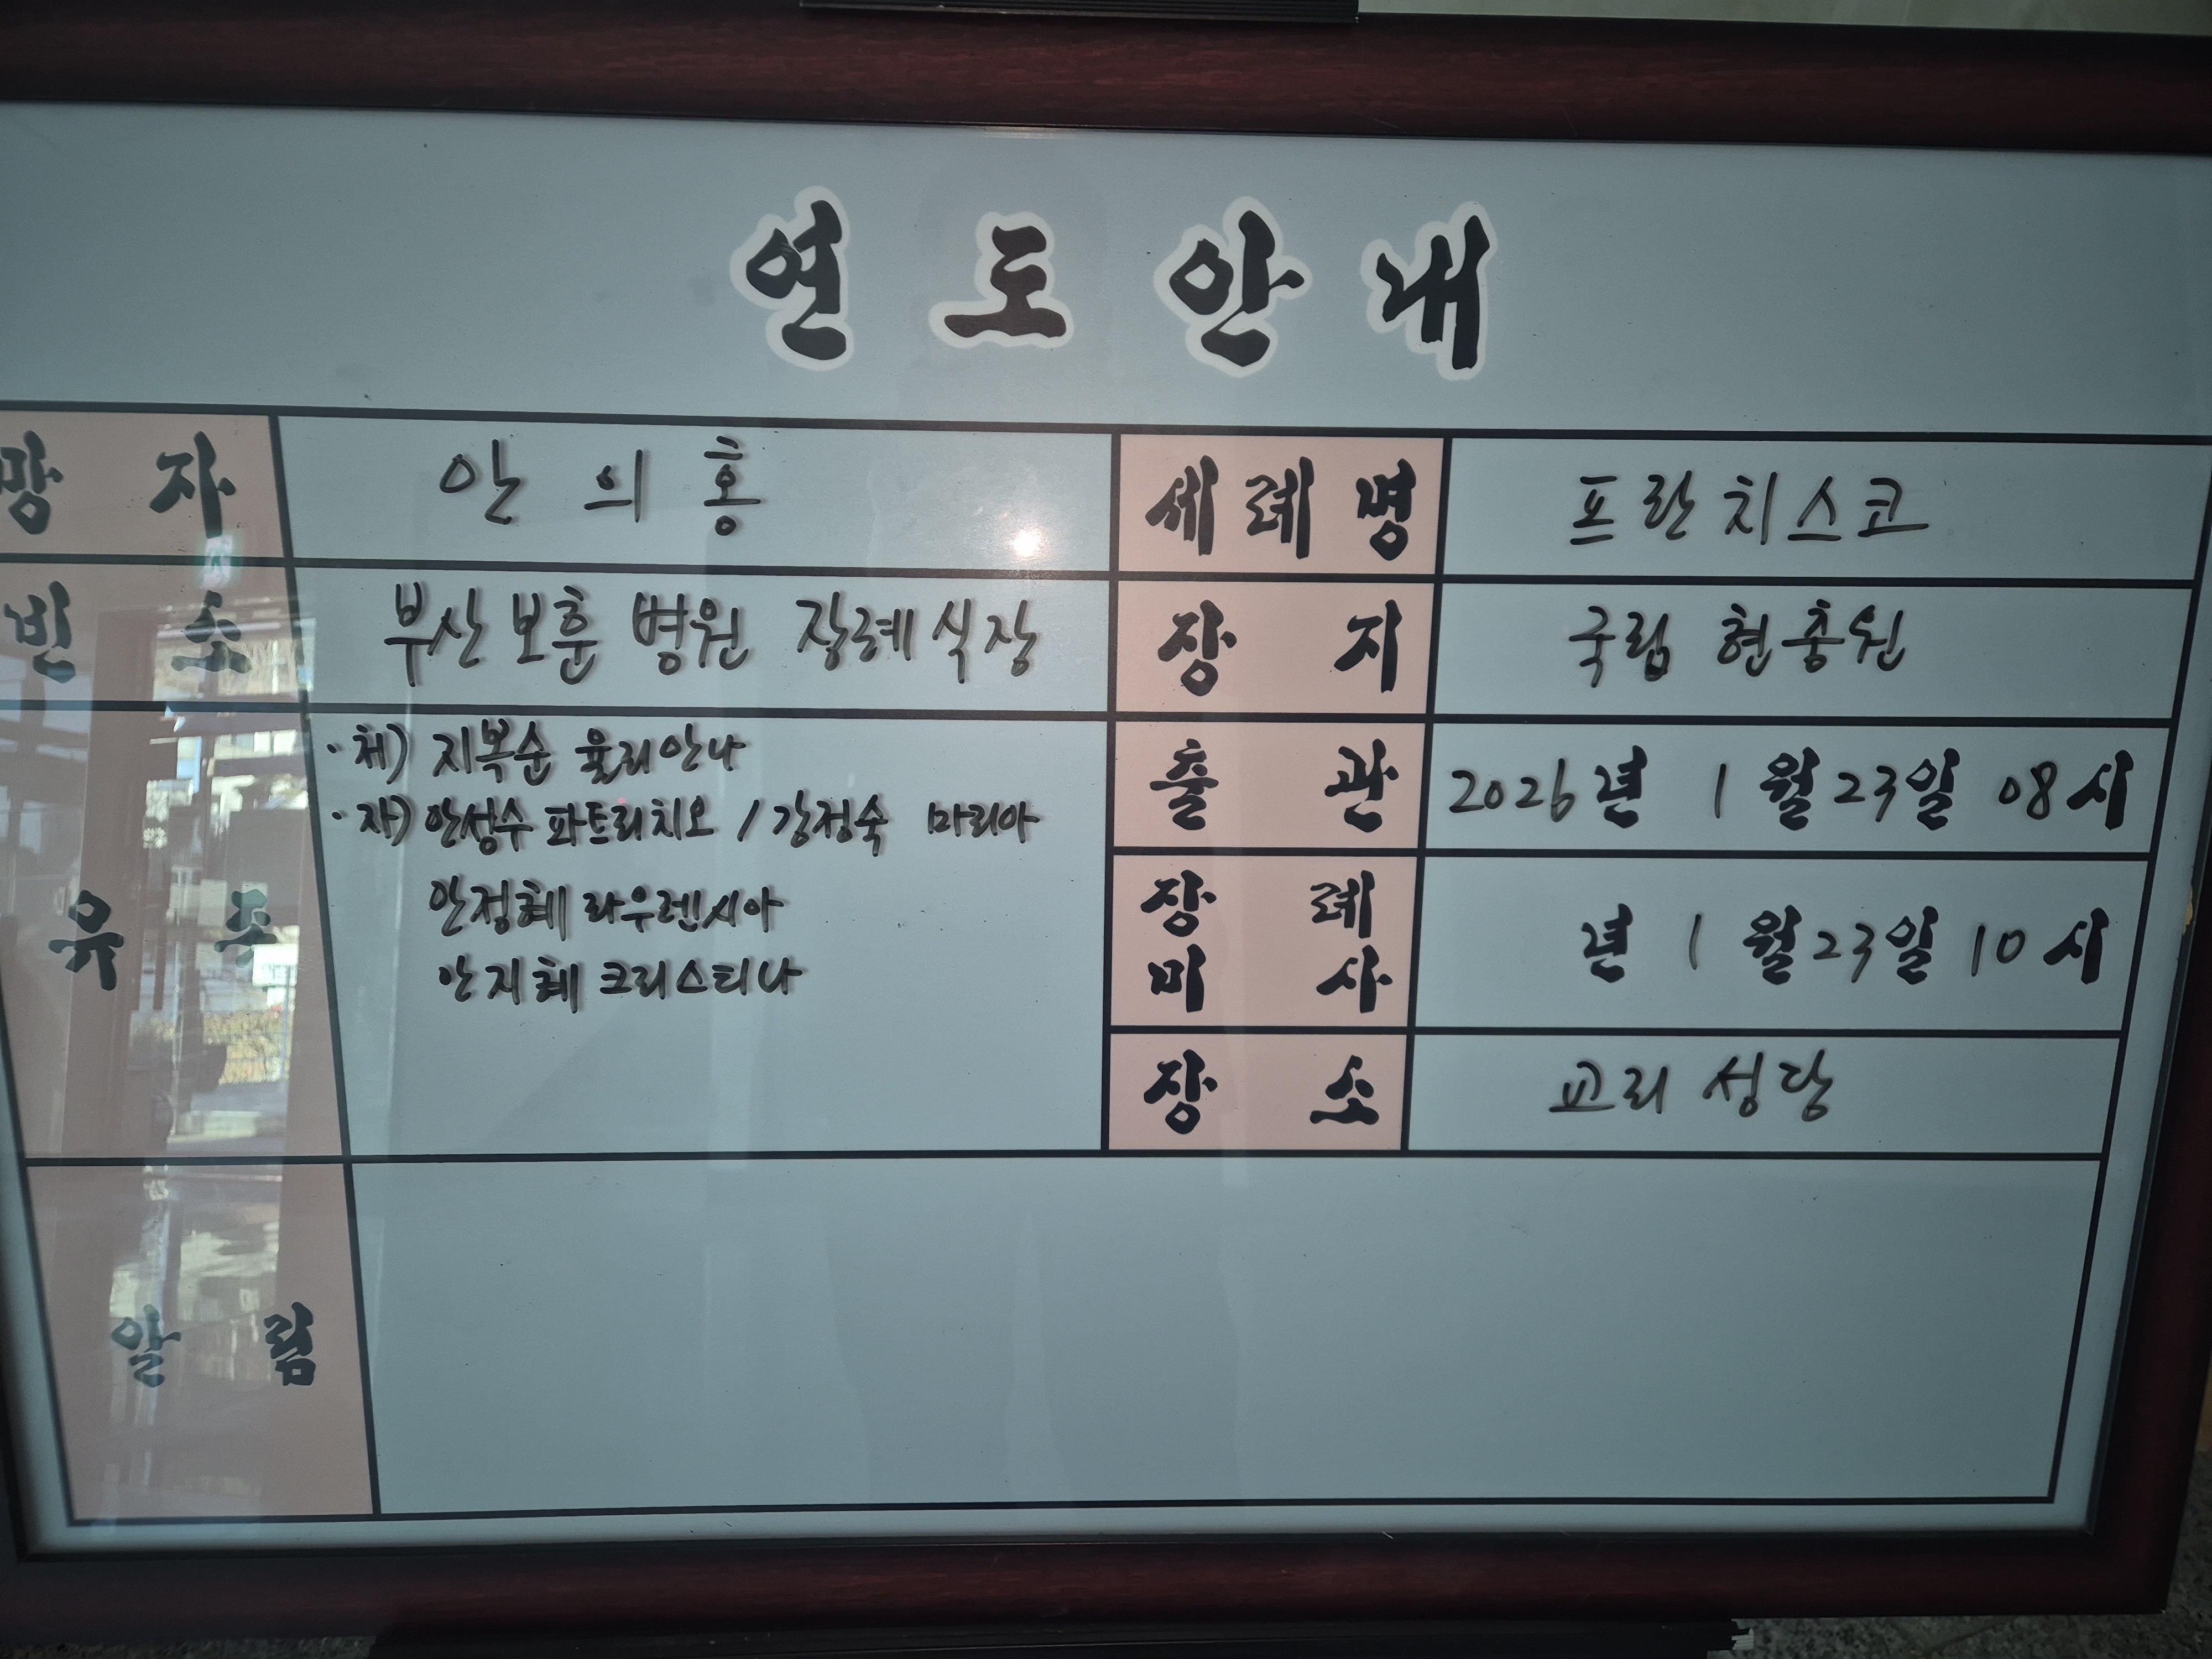 연도안내
망자 안의홍 세례명 프란치스코
빈소 부산보훈병원 장례식장 장지 국립현충원
유족
·처) 지복순 율리안나
·자) 안성수 파트리치오 / 강정숙 마리아
안정혜 라우렌시아
안지혜 크리스티나
출관 2026년 1월 23일 08시
장례미사 년 1월 23일 10시
장소 교리성당
알림